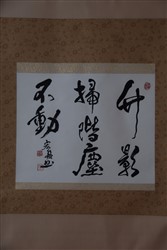 竹影
掃階塵
不動